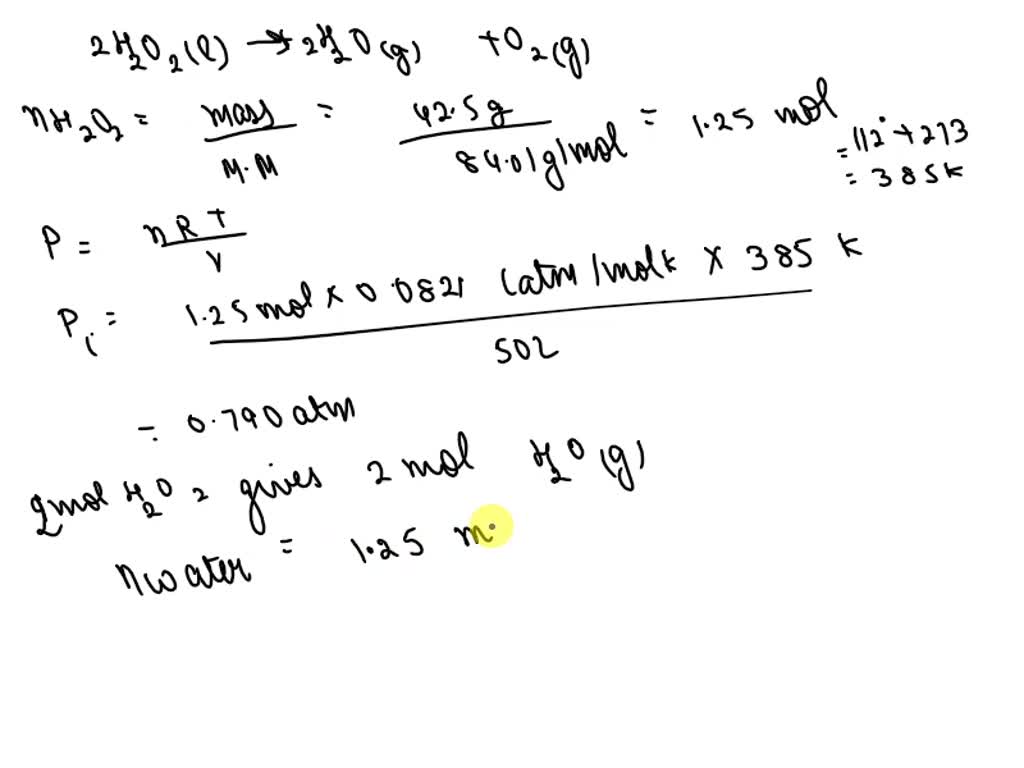 2H₂O₂(l) → 2H₂O(g) + O₂(g)
nH₂O₂ = mass / M.M = 42.5g / 84.01g/mol = 1.25 mol
= 112° + 273
= 385k
P = nRT / V
Pi = 1.25 mol × 0.0821 Latm/molk × 385 k / 50L
= 0.790 atm
2mol H₂O₂ gives 2 mol H₂O(g)
nwater = 1.25 m